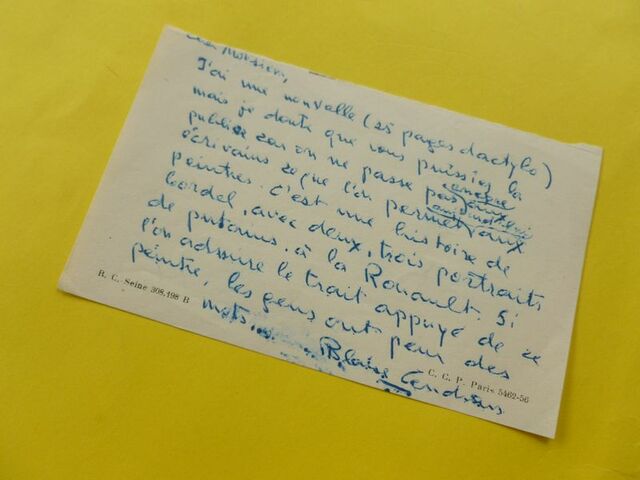 Cher Monsieur,
J'ai une nouvelle (25 pages dactylo)
mais je doute que vous puissiez la
publier car on ne passe pas aux
encore
écrivains ce que l'on permet aux
peintres. C'est une histoire de
bordel, avec deux, trois portraits
de putains, à la Rouault. Si
l'on admire le trait appuyé de ce
peintre, les gens ont peur des
mots.
Blaise Cendrars
R. C. Seine 308,198 B
C. C. P. Paris 5462-56